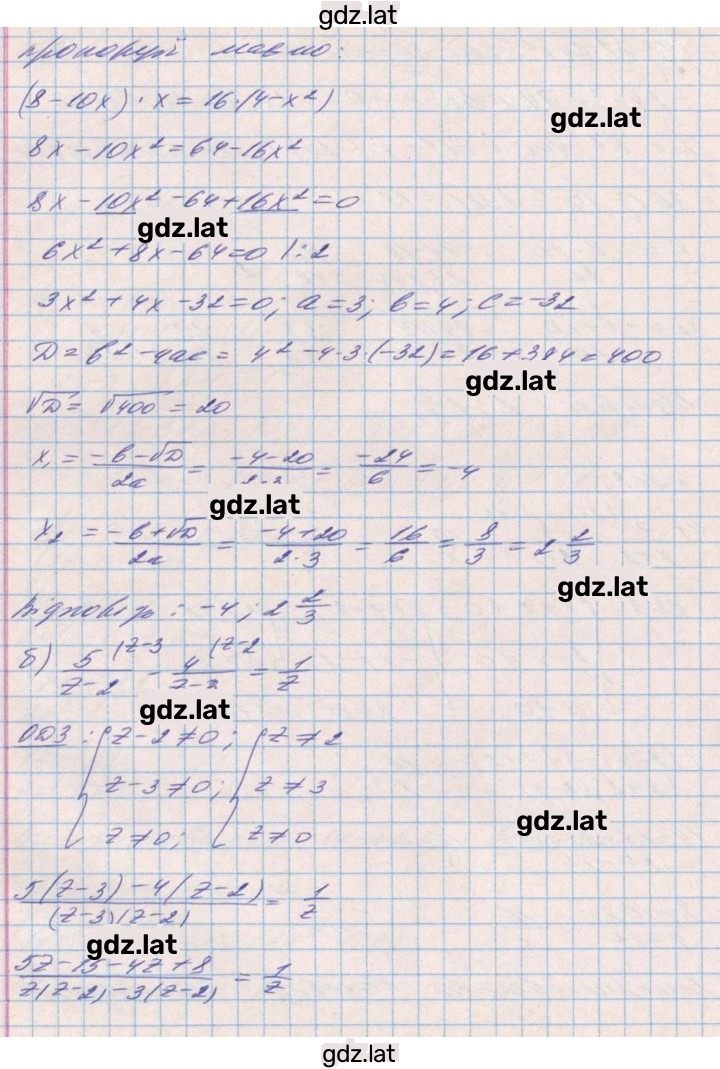 gdz.lat
(8-10x)·x=16·(4-x²)
gdz.lat
8x-10x²=64-16x²
8x-10x²-64+16x²=0
gdz.lat
6x²+8x-64=0 |:2
3x²+4x-32=0; a=3; b=4; c=-32
D=b²-4ac=4²-4·3·(-32)=16+384=400
gdz.lat
√D=√400=20
x₁=(-b-√D)/2a=(-4-20)/(2·3)=-24/6=-4
gdz.lat
x₂=(-b+√D)/2a=(-4+20)/(2·3)=16/6=8/3=2 2/3
gdz.lat
Відповідь: -4; 2 2/3
б) 5/(z-2) (z-3 - 4/(z-3) (z-2 = 1/z
gdz.lat
ОДЗ: { z-2≠0; { z≠2
z-3≠0; z≠3
z≠0; z≠0
gdz.lat
(5(z-3)-4(z-2))/((z-3)(z-2))=1/z
gdz.lat
(5z-15-4z+8)/(z(z-2)-3(z-2))=1/z
gdz.lat